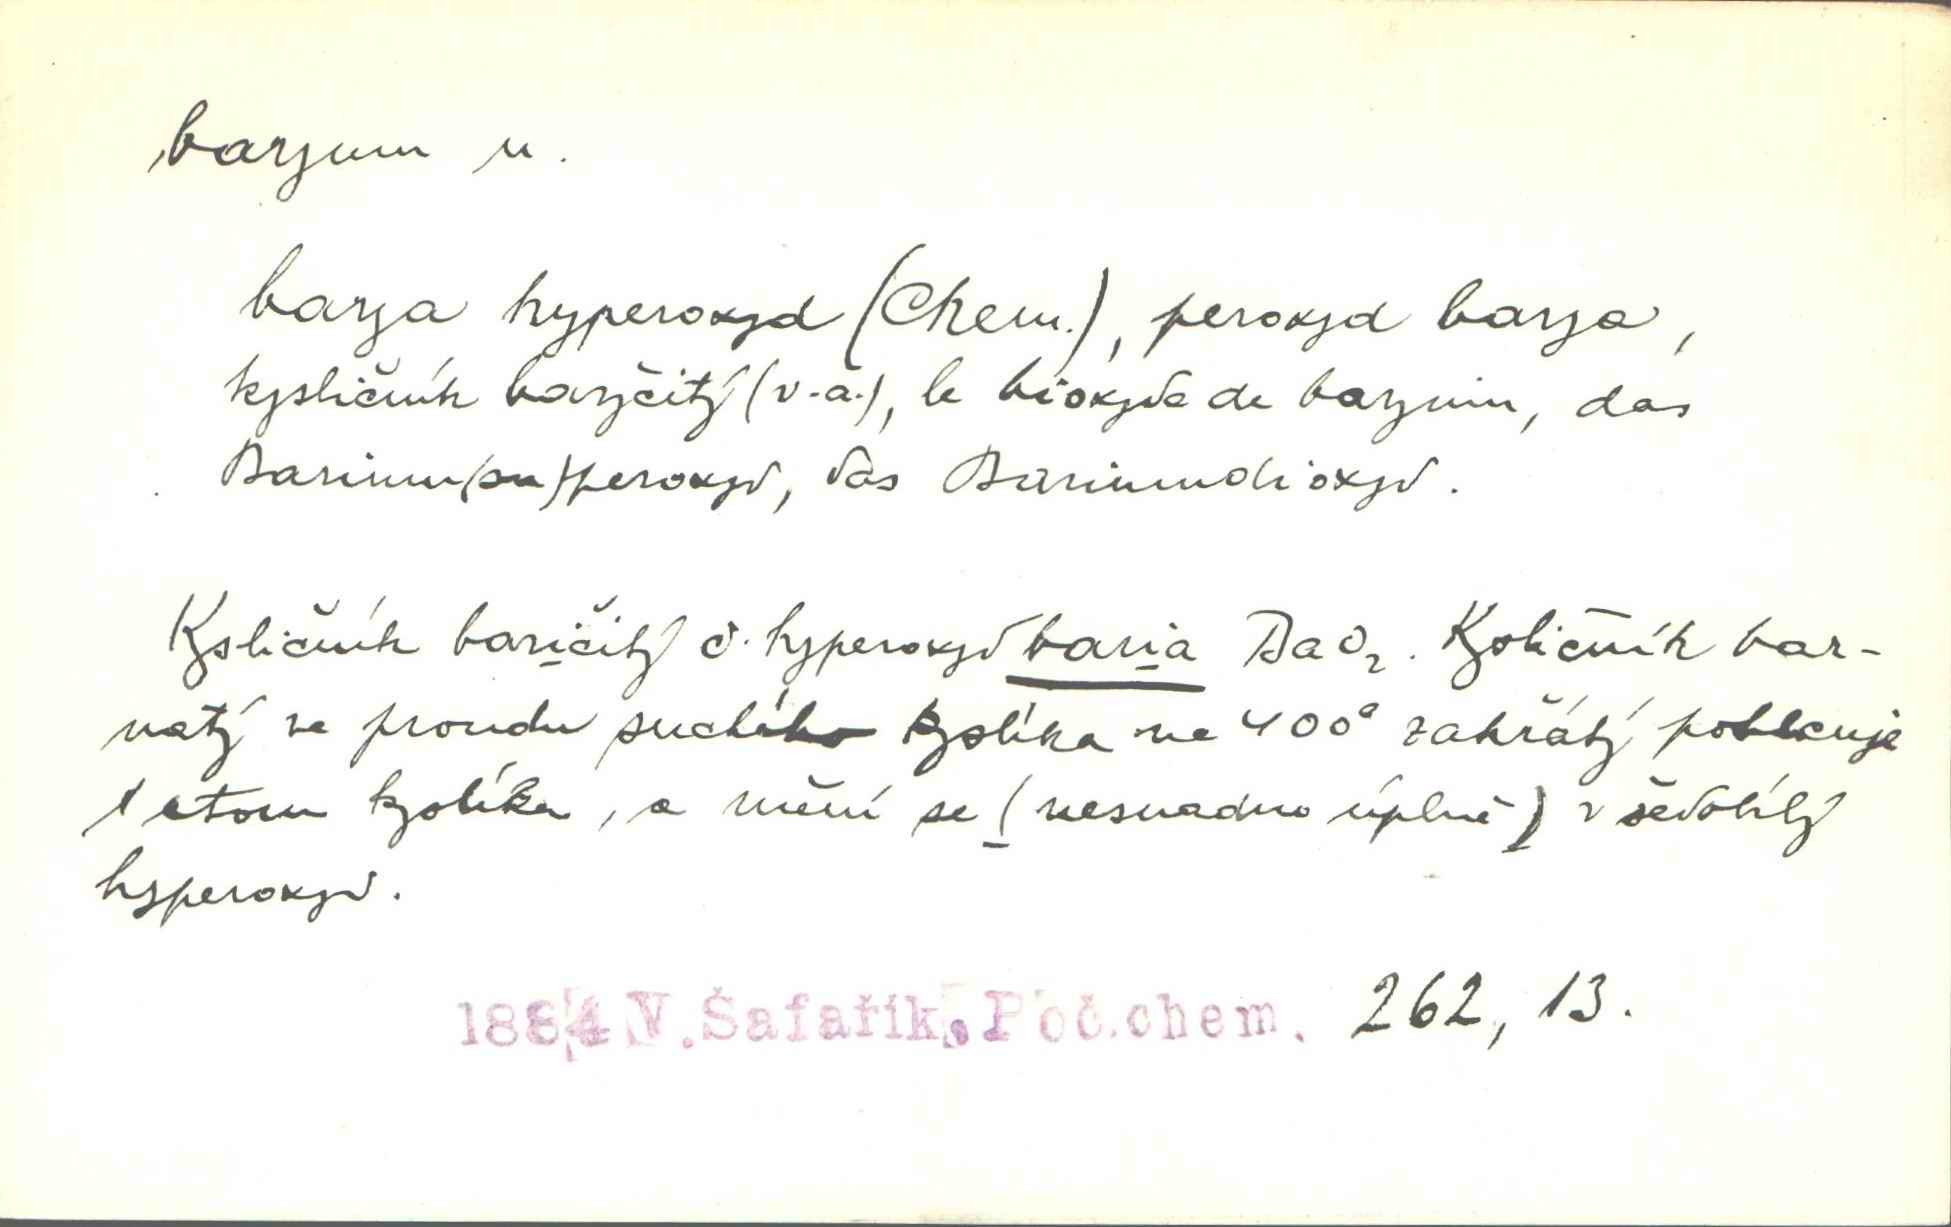 baryum n.
barya hyperoxyd (Chem.), peroxyd barya,
kysličník baryčitý (v. a.), le bioxyde de baryum, das
Barium(su)peroxyd, das Bariumdioxyd.
Kysličník baričitý č. hyperoxyd baria BaO₂. Kysličník bar-
natý ve proudu suchého kyslíka na 400° zahřátý pohlcuje
1 atom kyslíka, a mění se (nesnadno úplně) v šedobílý
hyperoxyd.
1884 V. Šafařík. Poč. chem. 262, 13.